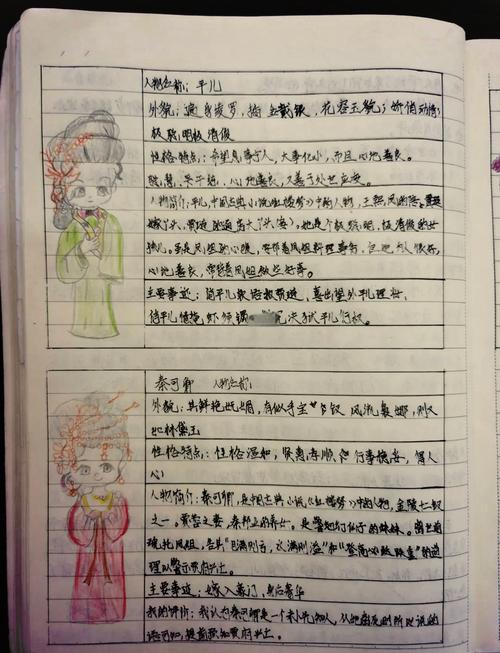 人物名称：平儿
外貌：遍身绫罗，插金戴银，花容玉貌；娇俏动情；
极聪明极清俊
性格特点：希望息事宁人，大事化小，而且心地善良。
聪慧、采干练，心地善良，又善于处世应变。
人物简介：平儿，中国古典小说《红楼梦》中的人物，王熙凤的陪
嫁丫头，贾琏的通房大丫头。她是个极聪明，极清俊的女
孩儿。虽是凤姐的心腹，要帮着凤姐料理事务，但她为人很好，
心地善良，常背着凤姐做些好事。
主要事迹：俏平儿软语救贾琏，喜出望外平儿理妆，
俏平儿情掩虾须镯 判冤决狱平儿行权。
秦可卿 人物名称：
外貌：其鲜艳妩媚，有似乎宝钗 风流袅娜，则又
如林黛玉
性格特点：性格温和，贤惠孝顺 行事稳妥，得人
心
人物简介：秦可卿，是中国古典小说《红楼梦》中的人物，金陵十二钗
之一。贾蓉之妻，秦邦业的养女。是警幻仙子的妹妹。病逝前
魂托凤姐，告其"月满则亏，水满则溢"和"登高必跌重"的道
理以警示贾府中人。
主要事迹：嫁入豪门，
我的评价：我认为秦可卿是一个